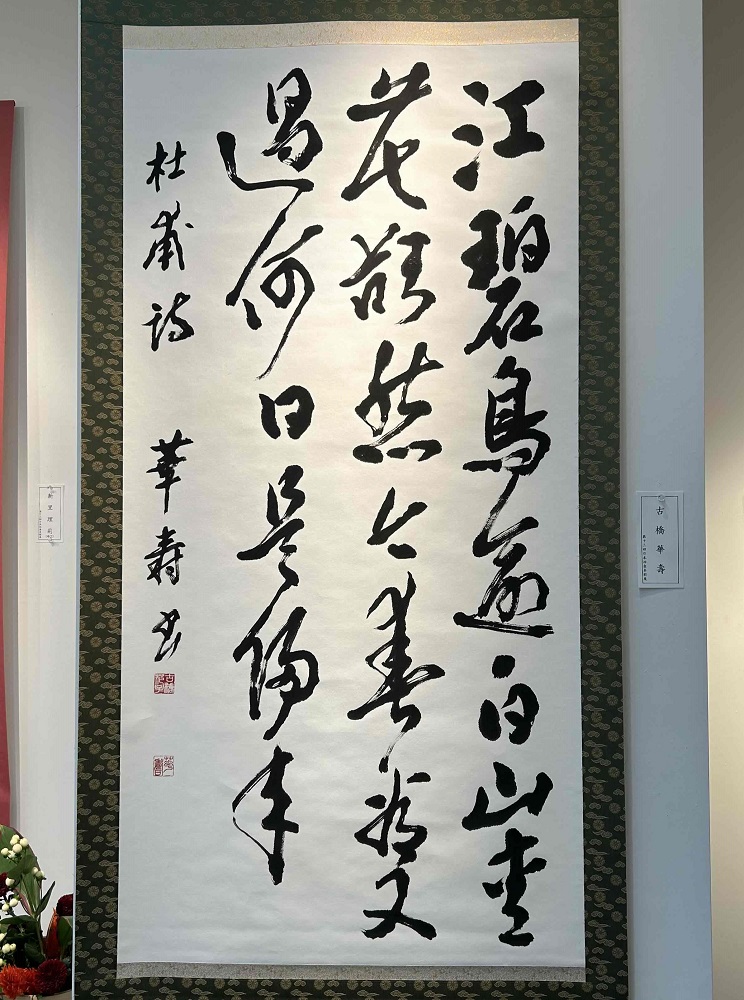 江碧鳥逾白山青
花欲然今春看又
過何日是歸年
杜甫詩 華寿書
古橋華壽